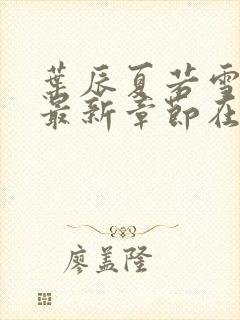 葉辰夏若雪
最新章節在
廖盖隆